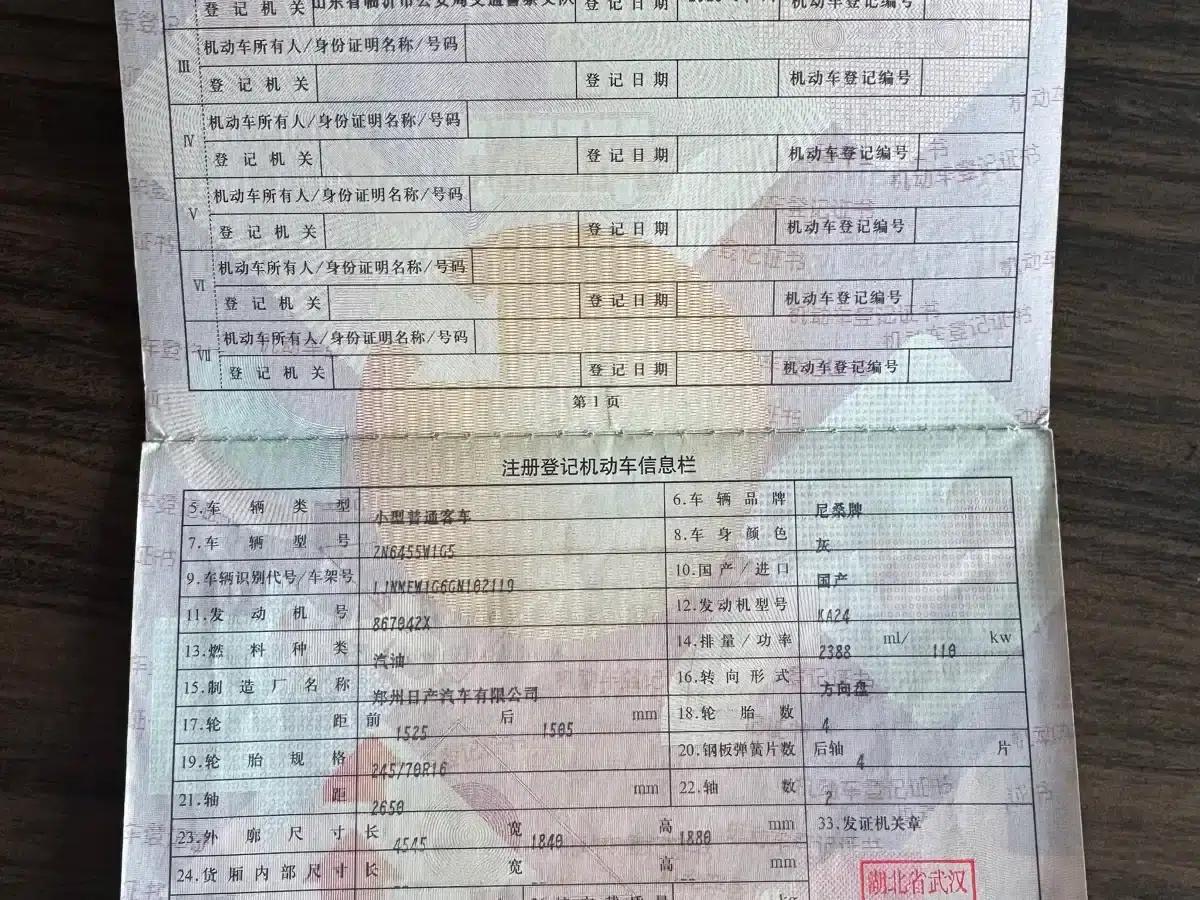 登记机关 山东省临沂市公安局交通警察支队 登记日期 机动车登记编号
Ⅲ 机动车所有人/身份证明名称/号码
登记机关 登记日期 机动车登记编号
Ⅳ 机动车所有人/身份证明名称/号码
登记机关 登记日期 机动车登记编号
Ⅴ 机动车所有人/身份证明名称/号码
登记机关 登记日期 机动车登记编号
Ⅵ 机动车所有人/身份证明名称/号码
登记机关 登记日期 机动车登记编号
Ⅶ 机动车所有人/身份证明名称/号码
登记机关 登记日期 机动车登记编号
第1页
注册登记机动车信息栏
5.车辆类型 小型普通客车 6.车辆品牌 尼桑牌
7.车辆型号 ZN6455W1G5 8.车身颜色 灰
9.车辆识别代号/车架号 LJNMFW1G6GN102119 10.国产/进口 国产
11.发动机号 867942X 12.发动机型号 KA24
13.燃料种类 汽油 14.排量/功率 2388 ml/ 110 kw
15.制造厂名称 郑州日产汽车有限公司 16.转向形式 方向盘
17.轮距 前 1525 后 1505 mm 18.轮胎数 4
19.轮胎规格 245/70R16 20.钢板弹簧片数 后轴 4 片
21.轴距 2650 mm 22.轴数 2
23.外廓尺寸 长 4545 宽 1840 高 1880 mm 33.发证机关章
24.货厢内部尺寸 长 宽 高 mm
湖北省武汉
kg